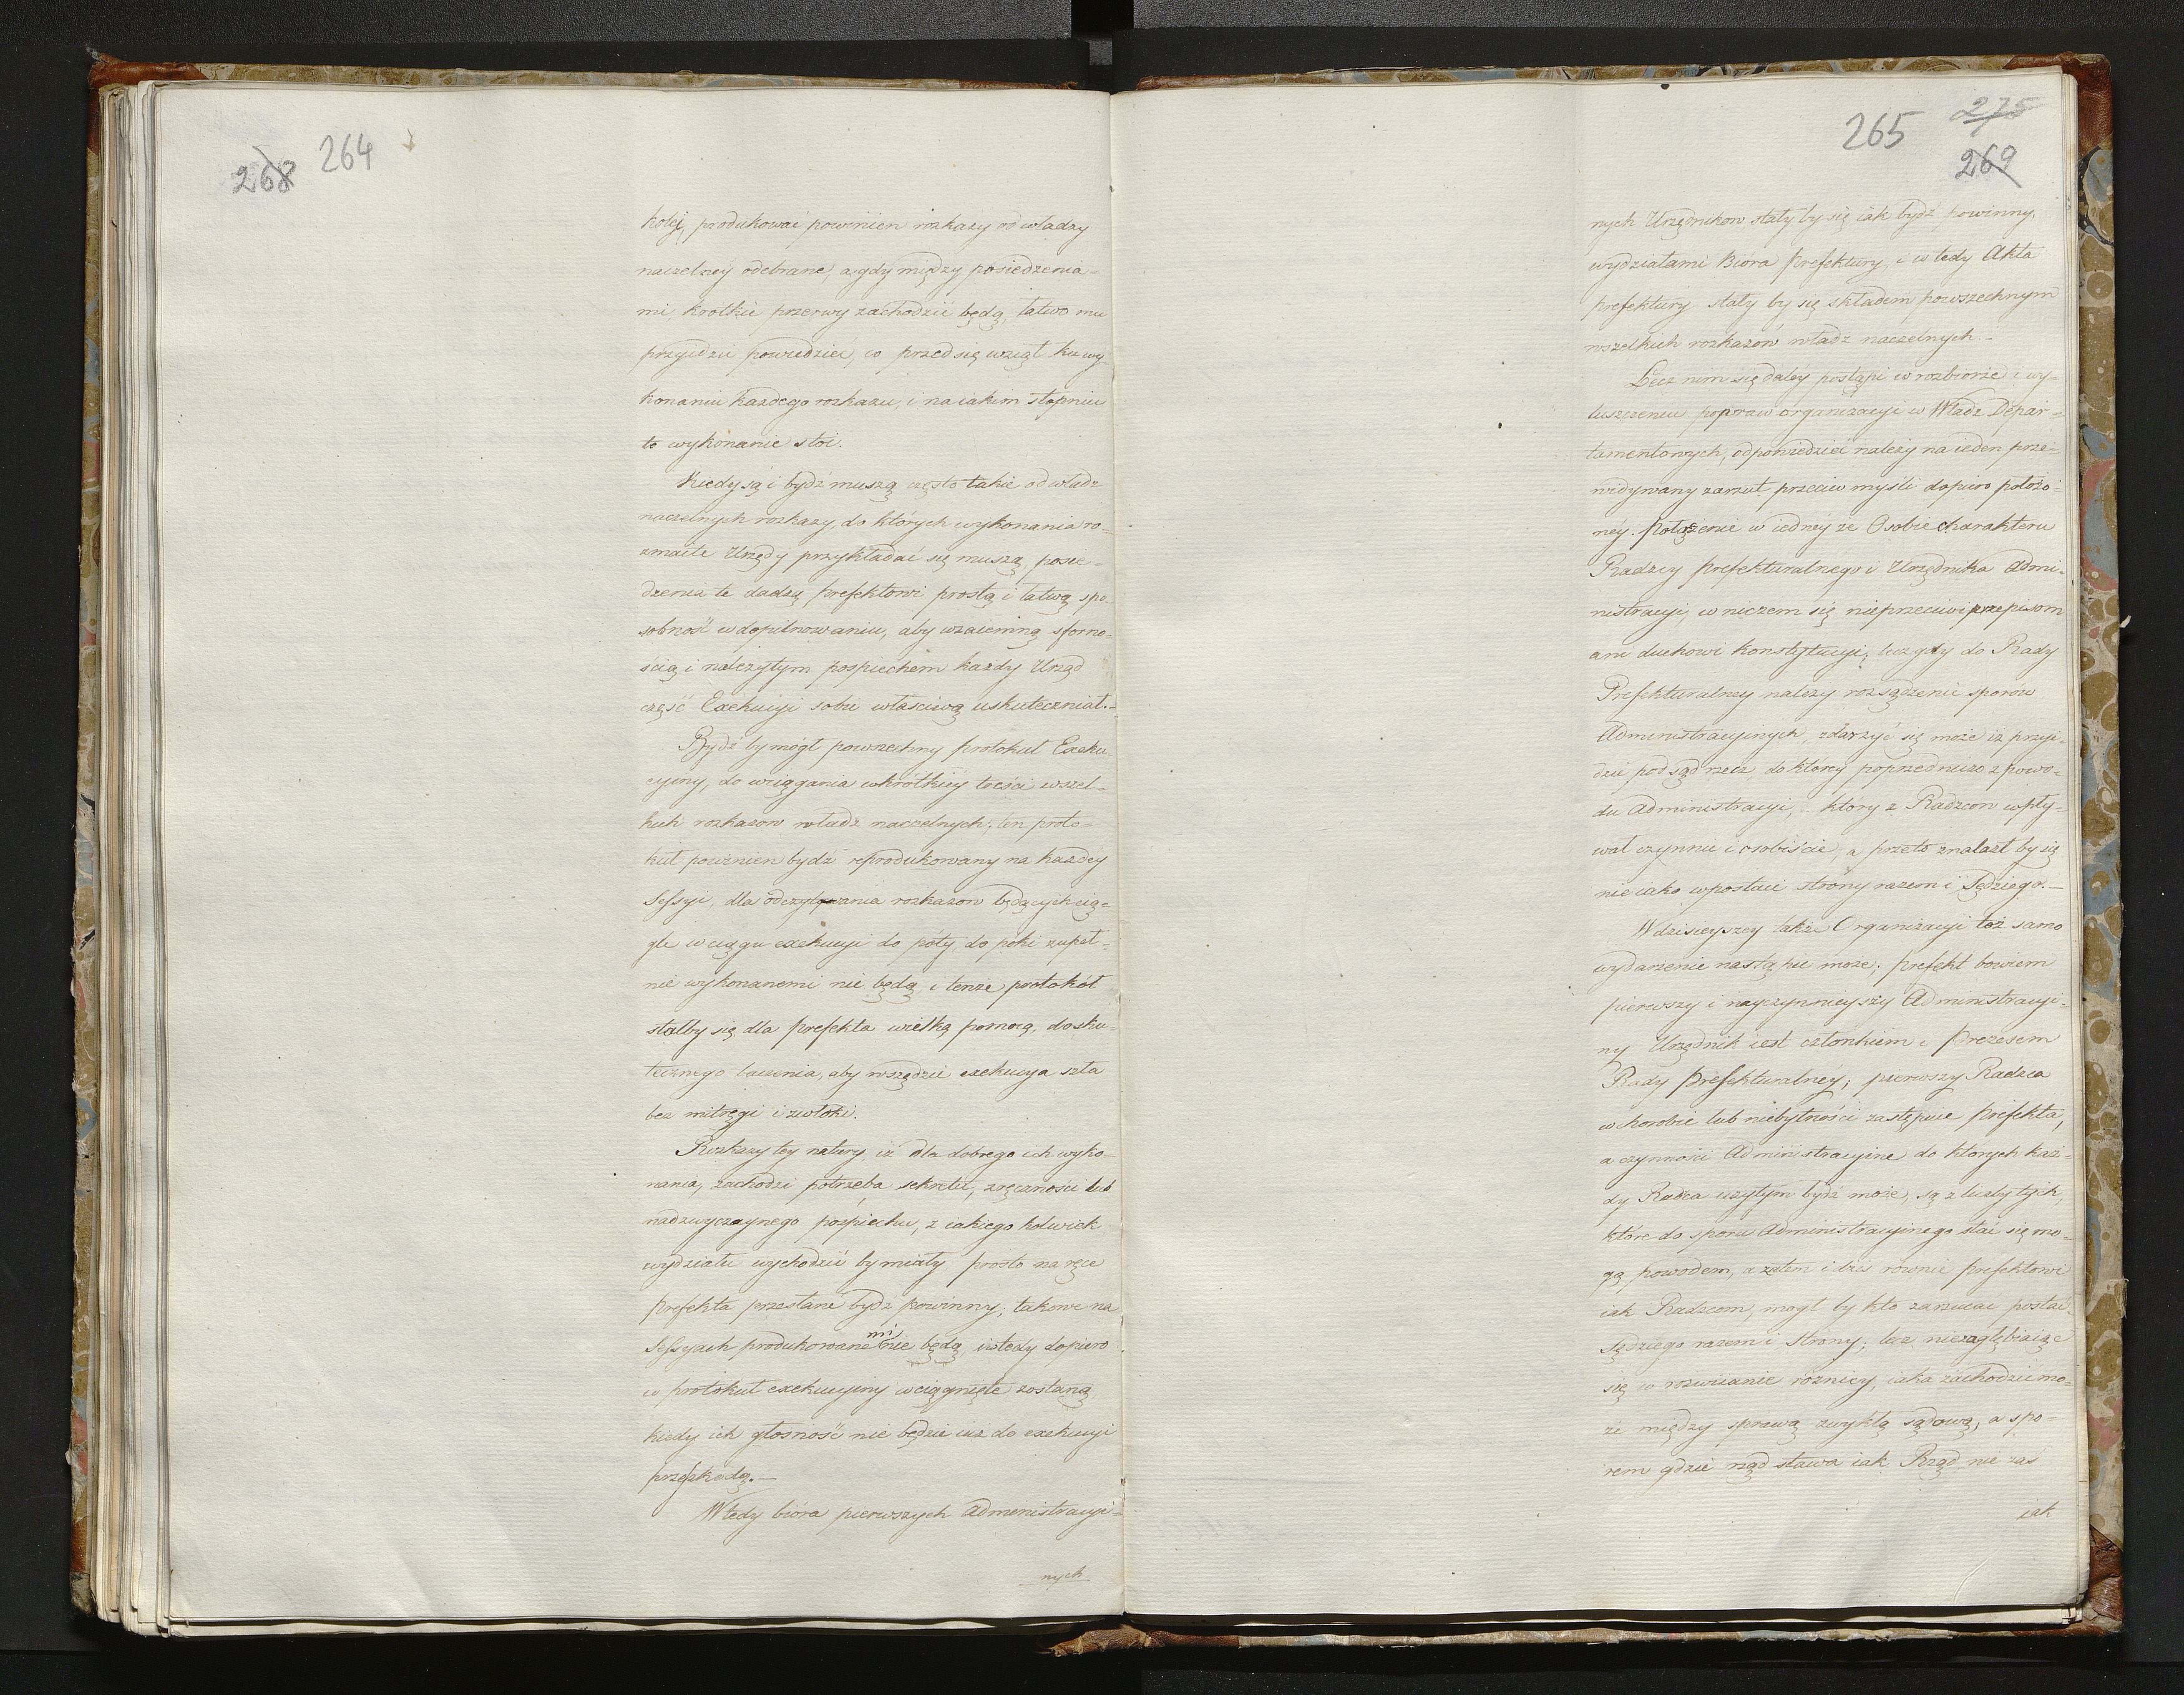 268 264
kolej, produkować powinien rozkazy od władzy
naczelney odebrane, a gdy między posiedzenia-
mi krótkie przerwy zachodzić będą, łatwo mu
przyidzie powiedzieć, co przed się wziął ku wy-
konaniu każdego rozkazu, i na iakim stopniu
to wykonanie stoi.
Kiedy są i bydź muszą często takie od władz
naczelnych rozkazy, do których wykonania ro-
zmaite Urzędy przykładać się muszą, posie-
dzenia te dadzą prefektowi prostą i łatwą spo-
sobność w dopilnowaniu, aby wzaiemną sforno-
ścią i należytym pospiechem każdy Urząd
część Exekucyi sobie właściwą uskuteczniał.-
Bydź by mógł powszechny protokuł Exeku-
cyiny, do wciągania w krótkiey treści wszel-
kich rozkazow władz naczelnych; ten proto-
kuł powinien bydź reprodukowany na każdey
Sessyi, dla odczytywania rozkazow będących cią-
gle w ciągu exekucyi do póty, do póki zupeł-
nie wykonanemi nie będą, i tenże protokół
stałby się dla prefekta wielką pomocą, do sku-
tecznego baczenia, aby wszędzie exekucya szła
bez mitręgi i zwłoki.
Rozkazy tey natury, iż dla dobrego ich wyko-
nania, zachodzi potrzeba sekretu, zręczności lub
nadzwyczaynego pospiechu, z iakiego kolwiek
wydziału wychodzić by miały prosto na ręce
prefekta przesłane bydź powinny; takowe na
mi
Sessyach produkowane nie będą, i wtedy dopiero
w protokuł exekucyiny wciągnięte zostaną,
kiedy ich głośność nie będzie iuż do exekucyi
przeszkodą.-
Wtedy biora pierwszych Administracyi-
nych
265 275
269
nych Urzędnikow stały by się iak bydź powinny,
wydziałami Biora Prefektury, i wtedy Akta
prefektury stały by się składem powszechnym
wszelkich rozkazów władz naczelnych.-
Lecz nim się daley postąpi w rozbiorze i wy-
łuszczeniu popraw organizacyi w Władz Depar-
tamentowych, odpowiedzieć należy na ieden prze-
widywany zarzut, przeciw myśli dopiero położo-
ney. Połączenie w iedney że Osobie charakteru
Radzcy prefekturalnego i Urzędnika Admi-
nistracyi, w niczem się nieprzeciwi przepisom
ani duchowi konstytucyi; lecz gdy do Rady
Prefekturalney należy rozsądzenie sporów
Administracyinych, zdarzyć się może iż przyi-
dzie pod sąd rzecz do ktorey poprzedniczo z powo-
du Administracyi, który z Radzcow wpły-
wał czynnie i osobiście, a przeto znalazł by się
nieiako w postaci strony razem i Sędziego.-
W dzisieyszey także Organizacyi toż samo
wydarzenie nastąpić może; prefekt bowiem
pierwszy i nayczynnieyszy Administracyi-
ny Urzędnik iest członkiem i Prezesem
Rady Prefekturalney; pierwszy Radzca
w chorobie lub niebytności zastępuie Prefekta,
a czynności Administracyine do ktorych każ-
dy Radca użytym bydź może, są z liczby tych,
które do sporu Administracyinego stać się mo-
gą powodem, a zatem i dziś równie prefektowi
iak Radzcom, mogł by kto zarzucać postać
Sędziego razem i Strony; lecz niezagłębiaiąc
się w rozwiianie rożnicy, iaka zachodzić mo-
że między sprawą zwykłą sądową, a spo-
rem gdzie rząd stawa iak Rząd nie zaś
iak